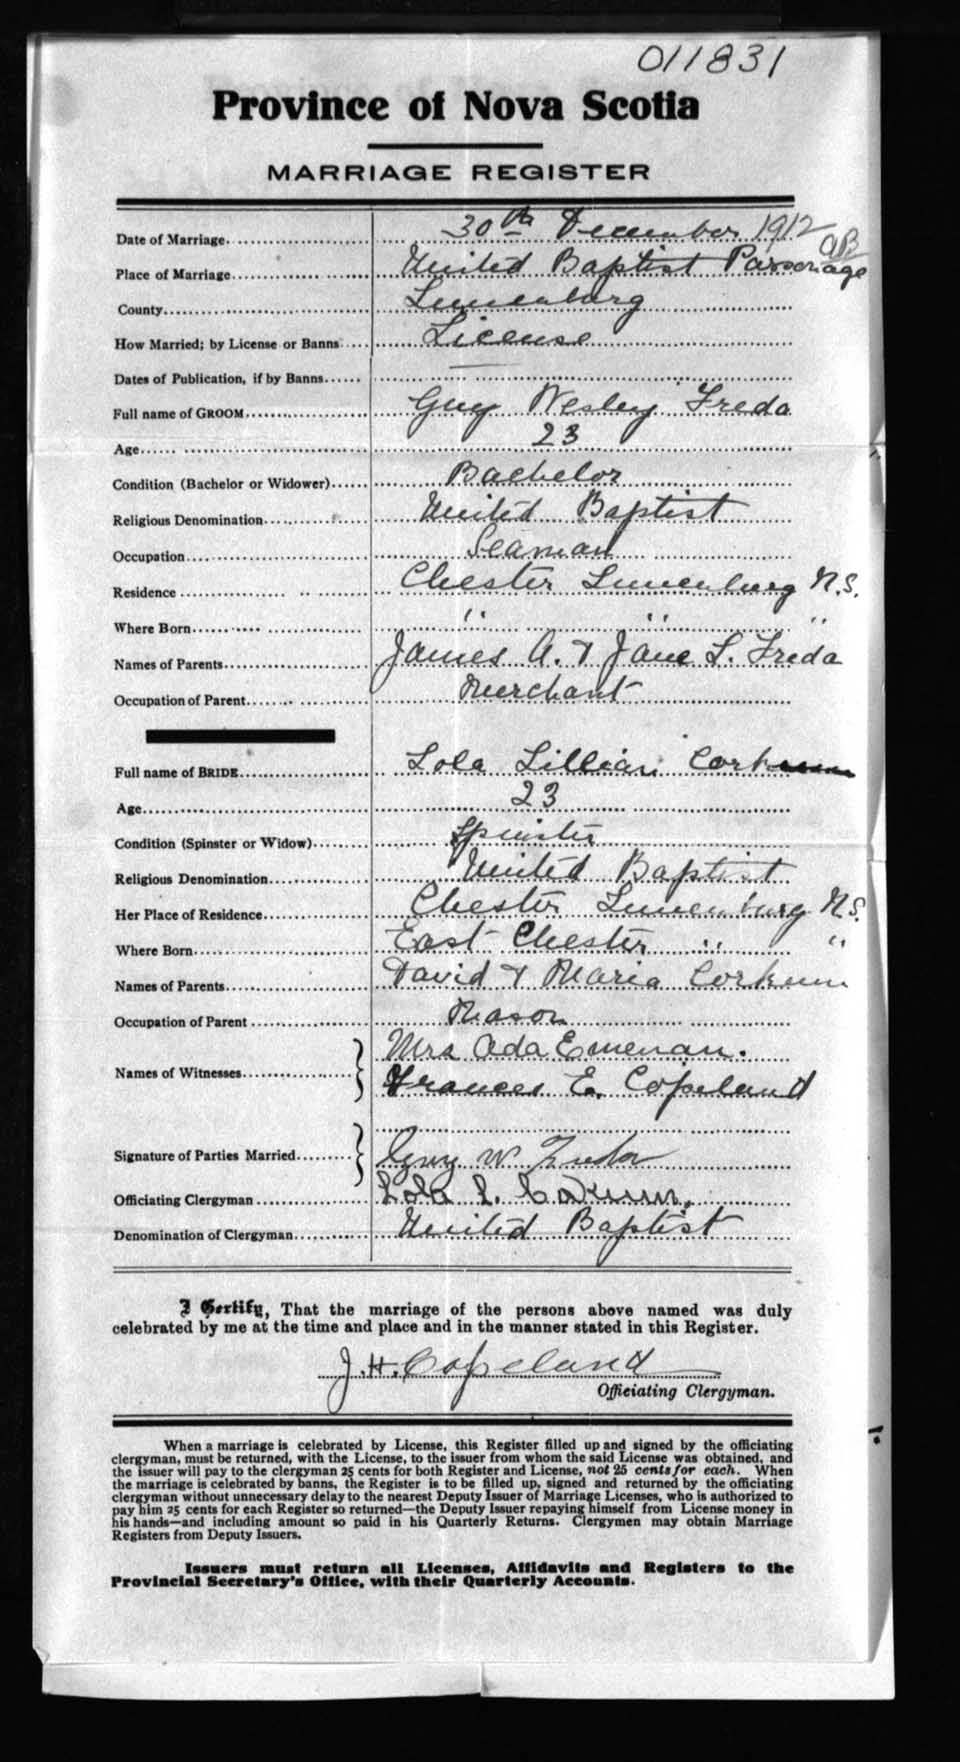 011831
Province of Nova Scotia
MARRIAGE REGISTER
Date of Marriage 30th December 1912
Place of Marriage United Baptist Parsonage
County Lunenburg
How Married; by License or Banns License
Dates of Publication, if by Banns —
Full name of GROOM Guy Wesley Freda
Age 23
Condition (Bachelor or Widower) Bachelor
Religious Denomination United Baptist
Occupation Seaman
Residence Chester Lunenburg N.S.
Where Born " " "
Names of Parents James A. & Jane L. Freda
Occupation of Parent Merchant
Full name of BRIDE Lola Lillian Corkum
Age 23
Condition (Spinster or Widow) Spinster
Religious Denomination United Baptist
Her Place of Residence Chester Lunenburg N.S.
Where Born East Chester " "
Names of Parents David & Maria Corkum
Occupation of Parent Mason
Names of Witnesses Mrs Ada
Frances E. Copeland
Signature of Parties Married Guy W Freda
Officiating Clergyman Lola L. Corkum.
Denomination of Clergyman United Baptist
I Certify, That the marriage of the persons above named was duly
celebrated by me at the time and place and in the manner stated in this Register.
J. H. Copeland
Officiating Clergyman.
When a marriage is celebrated by License, this Register filled up and signed by the officiating
clergyman, must be returned, with the License, to the issuer from whom the said License was obtained, and
the issuer will pay to the clergyman 25 cents for both Register and License, not 25 cents for each. When
the marriage is celebrated by banns, the Register is to be filled up, signed and returned by the officiating
clergyman without unnecessary delay to the nearest Deputy Issuer of Marriage Licenses, who is authorized to
pay him 25 cents for each Register so returned—the Deputy Issuer repaying himself from License money in
his hands—and including amount so paid in his Quarterly Returns. Clergymen may obtain Marriage
Registers from Deputy Issuers.
Issuers must return all Licenses, Affidavits and Registers to the
Provincial Secretary's Office, with their Quarterly Accounts.